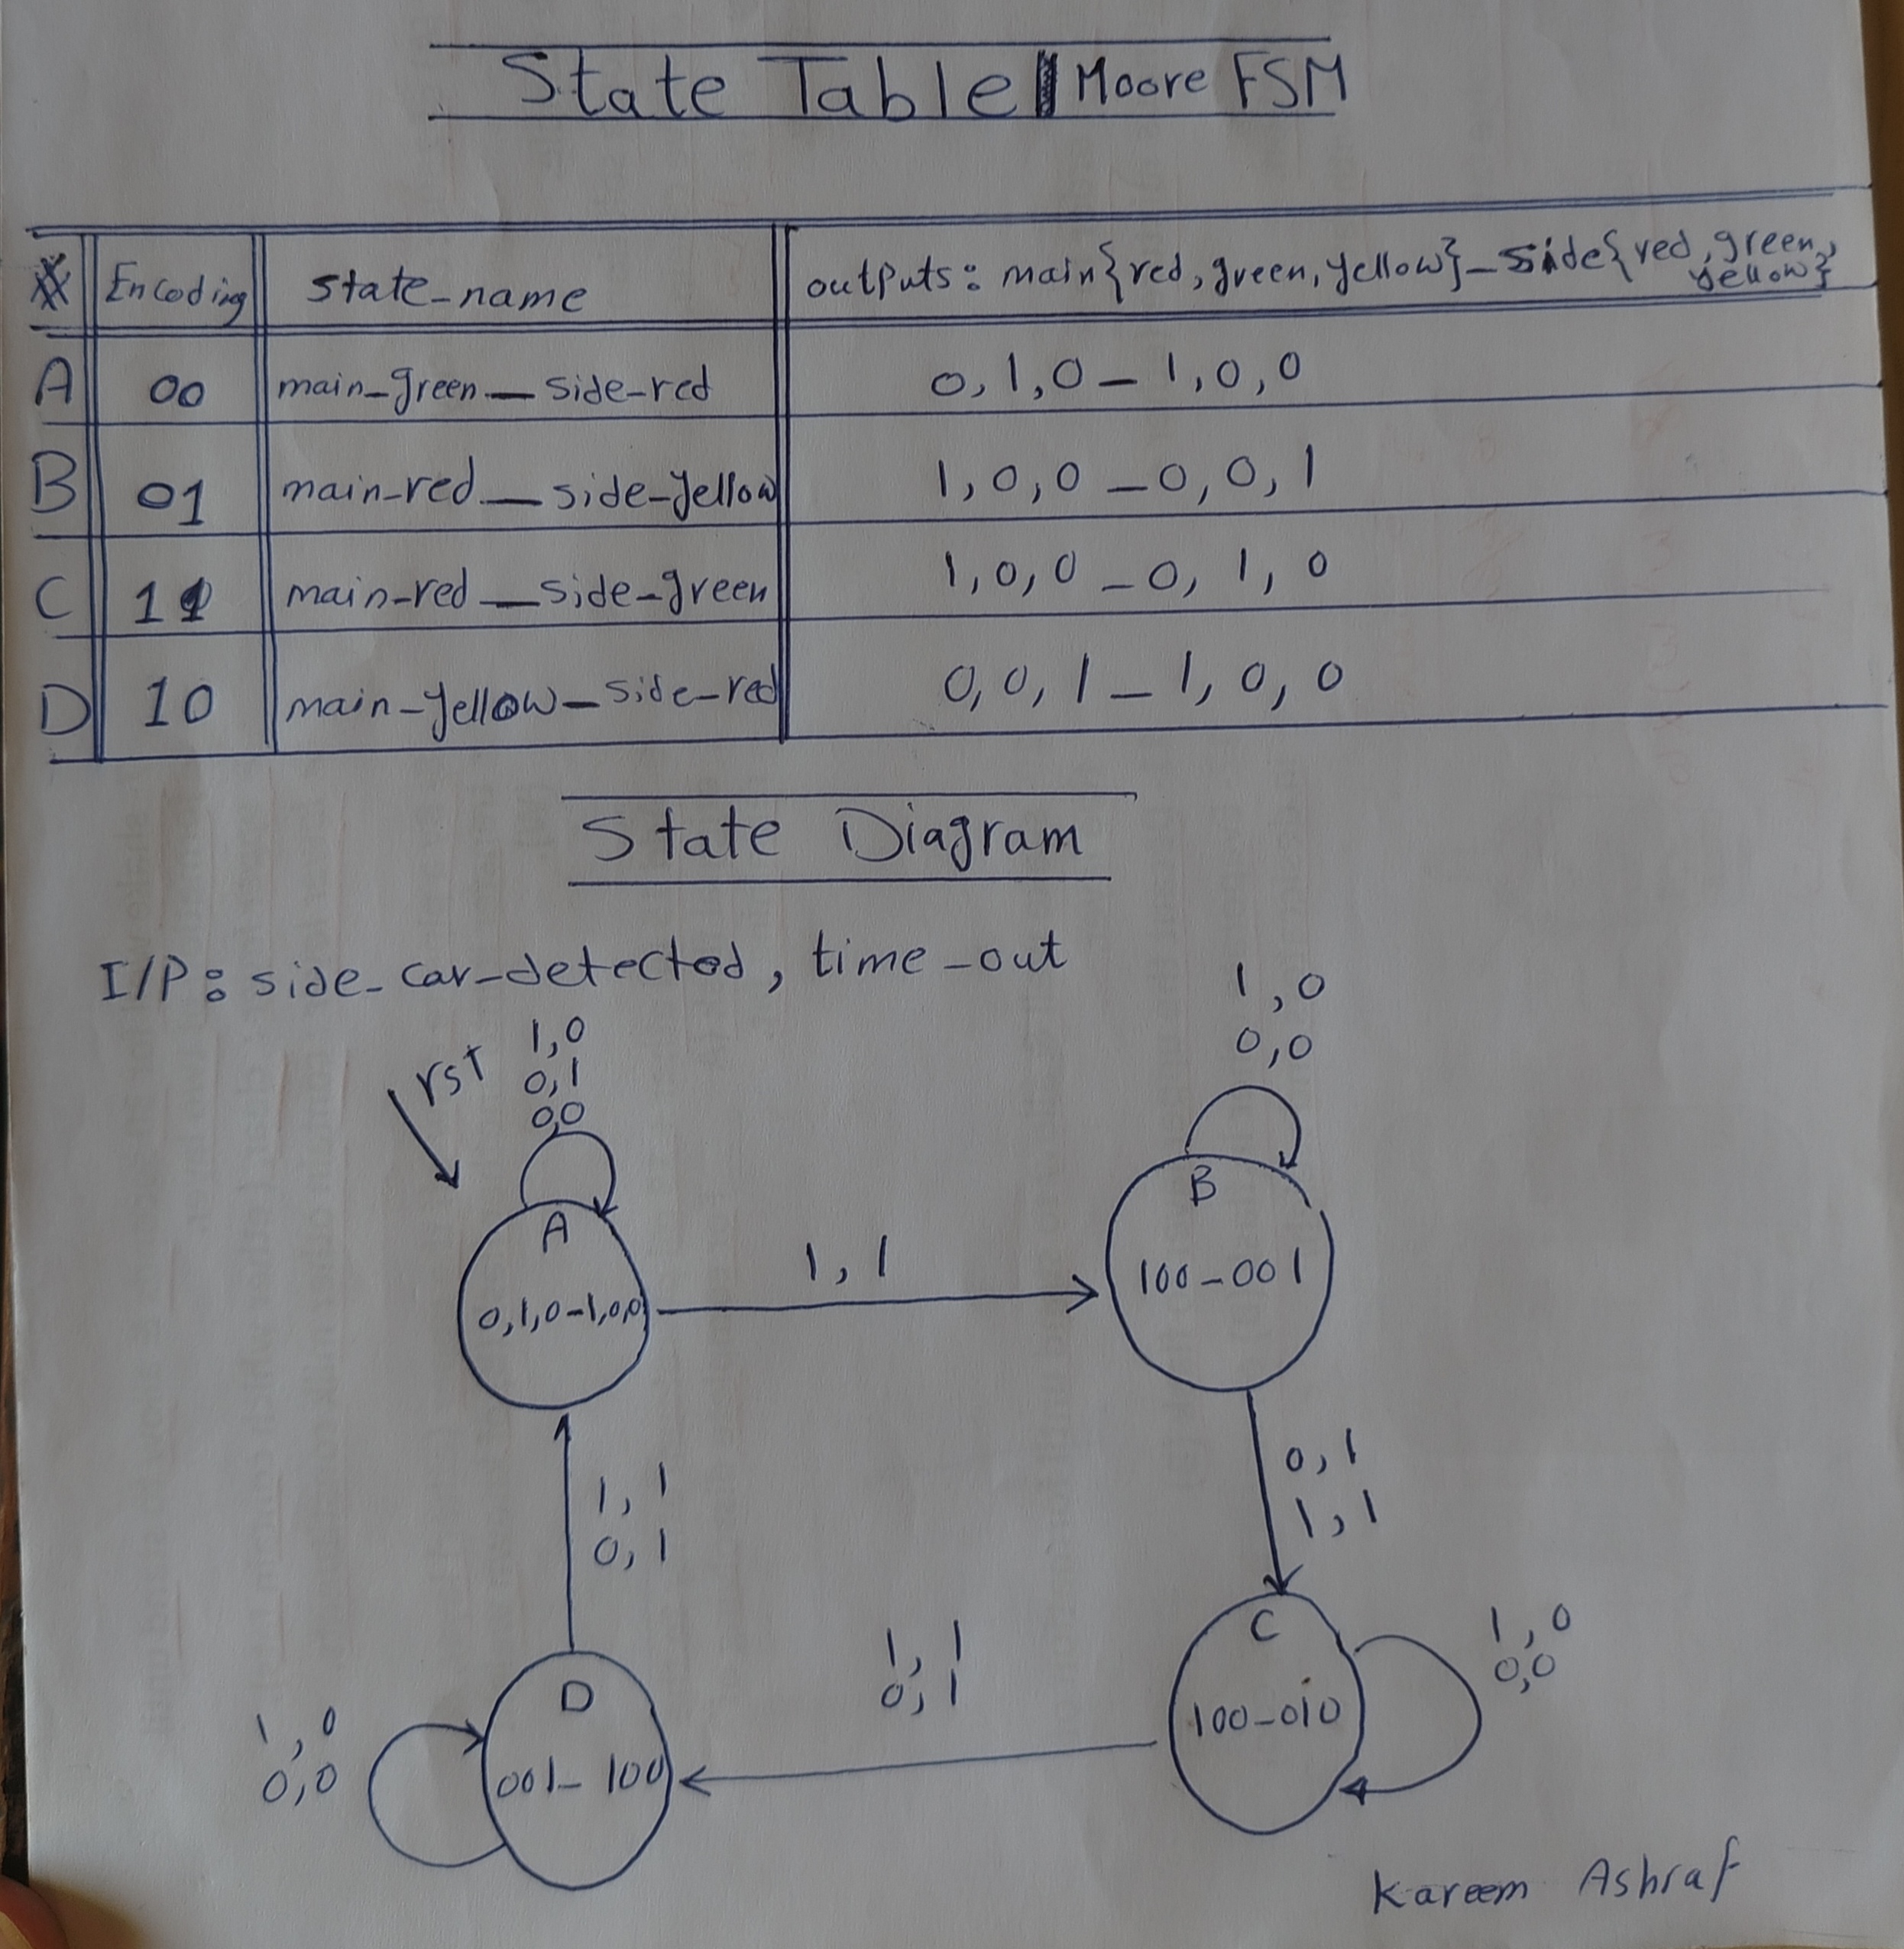 State Table | Moore FSM
Encoding state_name outputs: main{red, green, yellow}_side{red, green,
yellow}
A 00 main_green__side_red 0,1,0_1,0,0
B 01 main_red__side_yellow 1,0,0_0,0,1
C 11 main_red__side_green 1,0,0_0,1,0
D 10 main_yellow_side_red 0,0,1_1,0,0
State Diagram
I/P: side_car_detected, time_out
rst
1,0
0,1
0,0
A
0,1,0-1,0,0
1,1
1,0
0,0
B
100-001
0,1
1,1
1,1
0,1
C
100-010
1,0
0,0
1,1
0,1
D
001-100
1,0
0,0
Kareem Ashraf